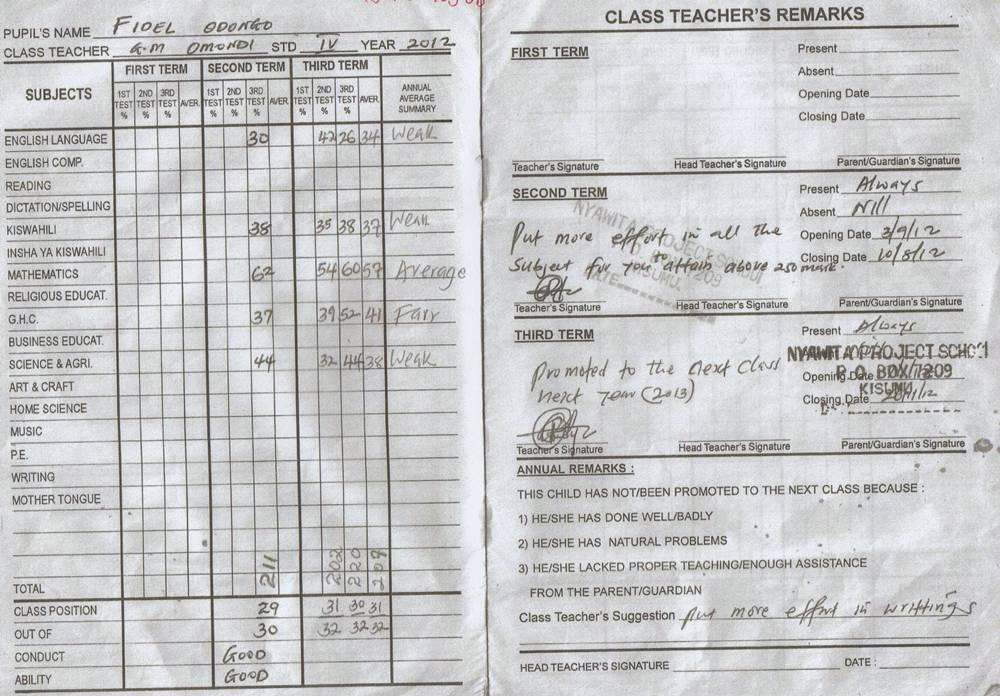 PUPIL'S NAME FIDEL ODONGO
CLASS TEACHER G.M OMONDI STD IV YEAR 2012
SUBJECTS FIRST TERM SECOND TERM THIRD TERM ANNUAL AVERAGE SUMMARY
1ST TEST % 2ND TEST % 3RD TEST % AVER. 1ST TEST % 2ND TEST % 3RD TEST % AVER. 1ST TEST % 2ND TEST % 3RD TEST % AVER.
ENGLISH LANGUAGE 30 42 26 34 Weak
ENGLISH COMP.
READING
DICTATION/SPELLING
KISWAHILI 38 35 38 37 Weak
INSHA YA KISWAHILI
MATHEMATICS 62 54 60 57 Average
RELIGIOUS EDUCAT.
G.H.C. 37 39 52 41 Fair
BUSINESS EDUCAT.
SCIENCE & AGRI. 44 32 44 38 Weak
ART & CRAFT
HOME SCIENCE
MUSIC
P.E.
WRITING
MOTHER TONGUE
TOTAL 211 202 220 207
CLASS POSITION 29 31 30 31
OUT OF 30 32 32 32
CONDUCT GOOD
ABILITY GOOD
CLASS TEACHER'S REMARKS
FIRST TERM
Present
Absent
Opening Date
Closing Date
Teacher's Signature Head Teacher's Signature Parent/Guardian's Signature
SECOND TERM
Present Always
Absent Nill
Opening Date 3/9/12
Closing Date 10/8/12
Put more effort in all the
Subject for you to attain above 250 mark.
NYAWITA PROJECT SCHOOL
KISUMU.
DATE
Teacher's Signature Head Teacher's Signature Parent/Guardian's Signature
THIRD TERM
Present Always
Opening Date
Closing Date
NYAWITA PROJECT SCHOOL
P.O. BOX 7209
KISUMU
Promoted to the next Class
next year (2013)
Teacher's Signature Head Teacher's Signature Parent/Guardian's Signature
ANNUAL REMARKS :
THIS CHILD HAS NOT/BEEN PROMOTED TO THE NEXT CLASS BECAUSE :
1) HE/SHE HAS DONE WELL/BADLY
2) HE/SHE HAS NATURAL PROBLEMS
3) HE/SHE LACKED PROPER TEACHING/ENOUGH ASSISTANCE
FROM THE PARENT/GUARDIAN
Class Teacher's Suggestion put more effort in writtings
HEAD TEACHER'S SIGNATURE DATE :